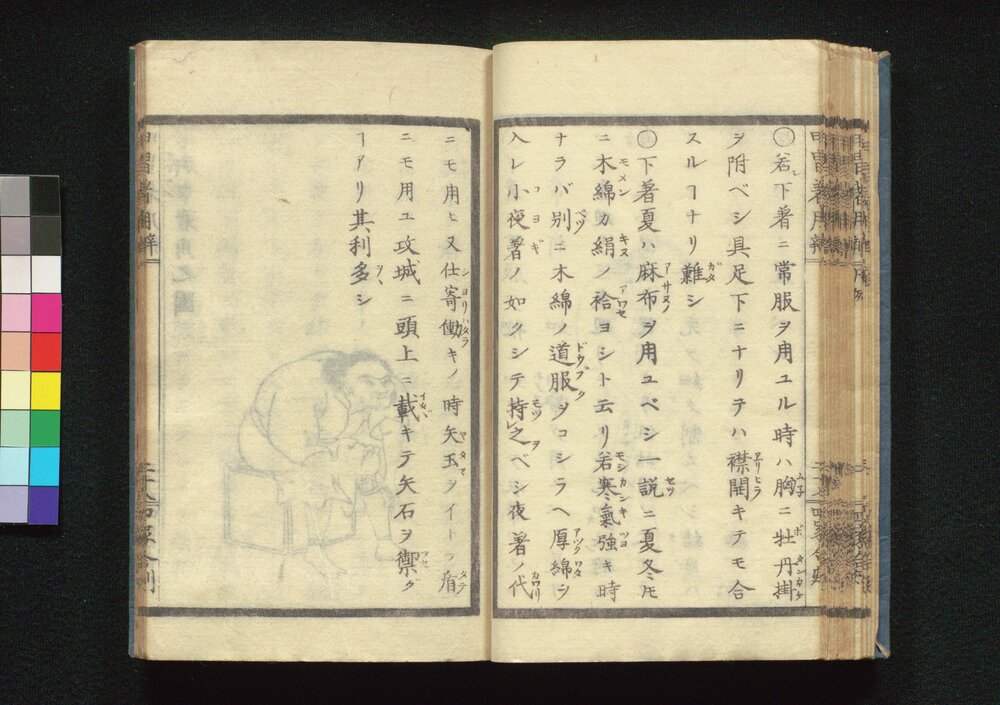 ○若下著ニ常服ヲ用ユル時ハ胸ニ牡丹掛
ヲ附ベシ具足下ニナリテハ襟開キテモ合
スルヿナリ難シ
○下著夏ハ麻布ヲ用ユベシ一説ニ夏冬ﾄﾓ
ニ木綿カ絹ノ袷ヨシト云リ若寒氣強キ時
ナラバ別ニ木綿ノ道服ヲコシラヘ厚綿ヲ
入レ小夜著ノ如クシテ持之ベシ夜著ノ代
ニモ用ヒ又仕寄働キノ時矢玉ヲイトフ盾
ニモ用ユ攻城ニ頭上ニ載キテ矢石ヲ禦グ
ヿアリ其利多シ